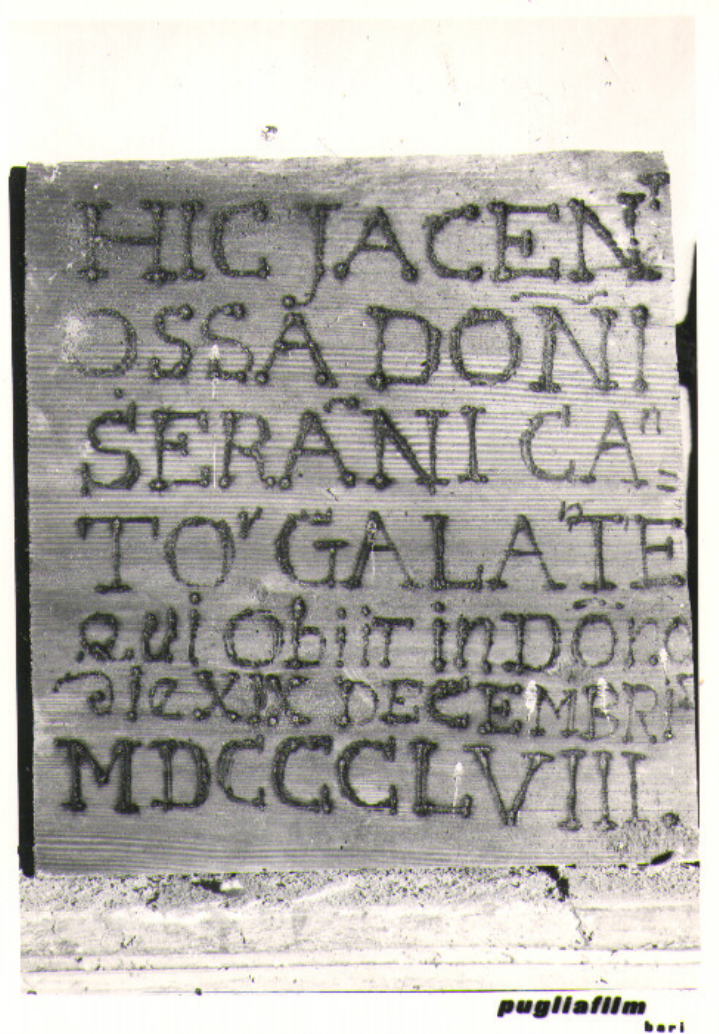 HIC JACENT
OSSA DOÑI
SERANI CAⁿ=
TOʳ GALAⁿTE
Qui Obiit in DÕno
die XIX DECEMBRIS
MDCCCLVIII.
pugliafilm
bari